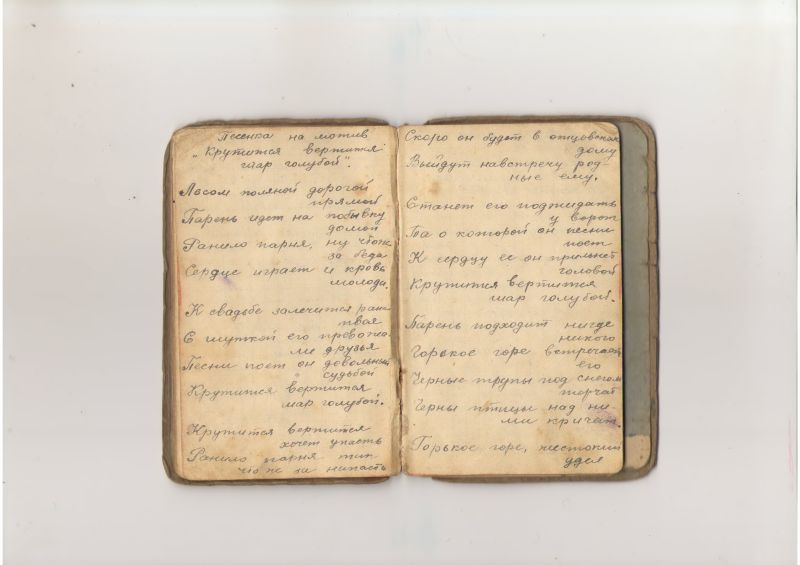 Песенка на мотив
„Крутится вертится
шар голубой".
Лесом поляной дорогой
прямой
Парень идет на побывку
домой
Ранило парня, ну чтож
за беда
Сердце играет и кровь
молода.
К свадьбе залечится рана
твоя
С шуткой его прововжа-
ли друзья
Песни поет он довольный
судьбой
Крутится вертится
шар голубой.
Крутится вертится
хочет упасть
Ранило парня тип
что ж за напасть
Скоро он будет в отцовском
дому
Выйдут навстречу род-
ные ему.
Станет его поджидать
у ворот
Та о которой он песни
поет
К сердцу ее он прильнет
головой
Крутится вертится
шар голубой.
Парень подходит нигде
никого
Горькое горе встречает
его
Черные трупы под снегом
торчат
Черны птицы над ни-
ми кричат.
Горькое горе, жестокий
удел